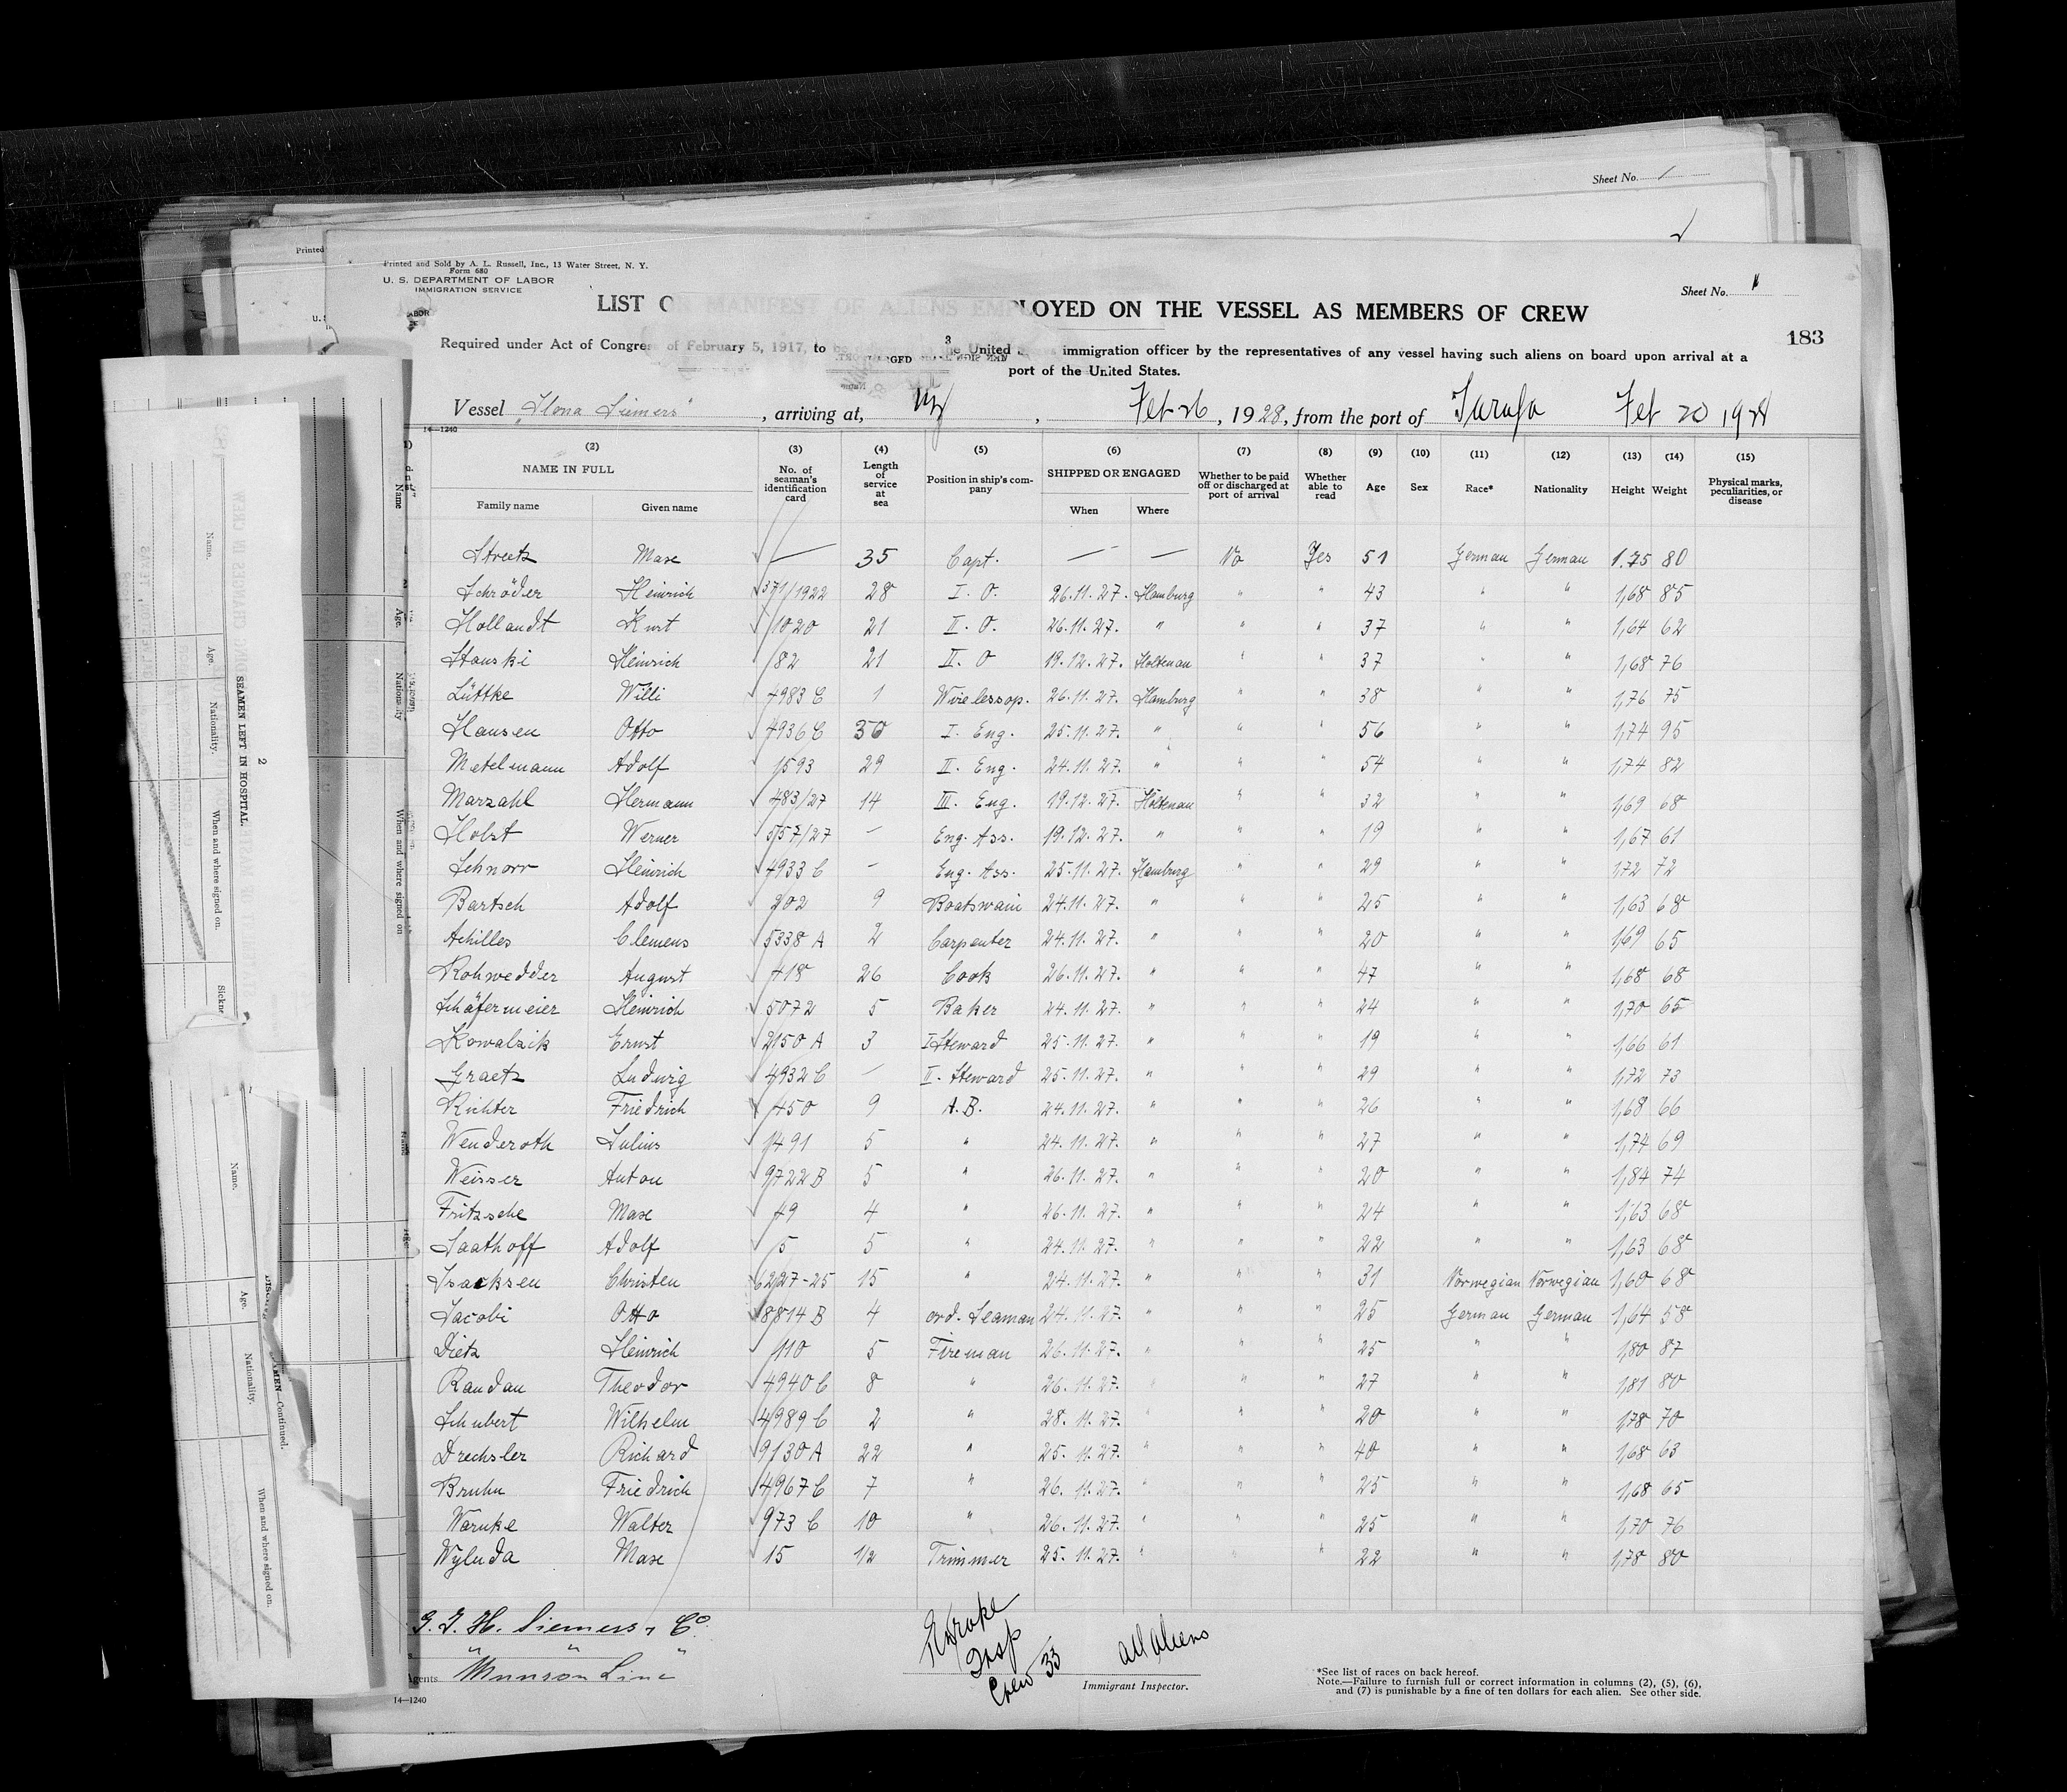 Sheet No. 1
Printed
Printed and Sold by A. L. Russell, Inc., 13 Water Street, N. Y.
Form 680
U. S. DEPARTMENT OF LABOR
IMMIGRATION SERVICE
Sheet No. 1
LIST OR MANIFEST OF ALIENS EMPLOYED ON THE VESSEL AS MEMBERS OF CREW
183
Required under Act of Congress of February 5, 1917, to be the United immigration officer by the representatives of any vessel having such aliens on board upon arrival at a
port of the United States.
Vessel "Ilona Siemers", arriving at, NY, Feb 26, 1928, from the port of Tarafa Feb 20 1928
14—1240
(2) (3) (4) (5) (6) (7) (8) (9) (10) (11) (12) (13) (14) (15)
NAME IN FULL No. of seaman's identification card Length of service at sea Position in ship's company SHIPPED OR ENGAGED Whether to be paid off or discharged at port of arrival Whether able to read Age Sex Race* Nationality Height Weight Physical marks, peculiarities, or disease
Family name Given name When Where
Streetz Max — 35 Capt. — — No Yes 51 German German 1.75 80
Schröder Heinrich 371/1922 28 I. O. 26.11.27. Hamburg " " 43 " " 1,68 85
Hollandt Kurt 1020 21 II. O. 26.11.27. " " " 37 " " 1,64 62
Stauski Heinrich 82 21 II. O 19.12.27. Holtenau " " 37 " " 1,68 76
Lüttke Willi 4983 C 1 Wirelessop. 26.11.27. Hamburg " " 38 " " 1,76 75
Hansen Otto 4936 C 30 I. Eng. 25.11.27. " " " 56 " " 1,74 95
Metelmann Adolf 1593 29 II. Eng. 24.11.27. " " " 54 " " 1,74 82
Marzahl Hermann 483/27 14 III. Eng. 19.12.27. Holtenau " " 32 " " 1,69 68
Hobst Werner 557/27 — Eng. Ass. 19.12.27. " " " 19 " " 1,67 61
Schnorr Heinrich 4933 C — Eng. Ass. 25.11.27. Hamburg " " 29 " " 172 72
Bartsch Adolf 202 9 Boatswain 24.11.27. " " " 25 " " 1,63 68
Achilles Clemens 5338 A 2 Carpenter 24.11.27. " " " 20 " " 1,69 65
Rohwedder August 418 26 Cook 26.11.27. " " " 47 " " 1,68 68
Schäfermeier Heinrich 5072 5 Baker 24.11.27. " " " 24 " " 1,70 65
Kowalzik Ernst 2150 A 3 I Steward 25.11.27. " " " 19 " " 1,66 61
Graetz Ludwig 4932 C — II. Steward 25.11.27. " " " 29 " " 1,72 73
Richter Friedrich 450 9 A.B. 24.11.27. " " " 26 " " 1,68 66
Wenderoth Julius 1491 5 " 24.11.27. " " " 27 " " 1,74 69
Weisser Anton 9722 B 5 " 26.11.27. " " " 20 " " 1,84 74
Fritzsche Max 49 4 " 26.11.27. " " " 24 " " 1,63 68
Saathoff Adolf 5 5 " 24.11.27. " " " 22 " " 1,63 68
Isacksen Christen 6227-25 15 " 24.11.27. " " " 31 Norwegian Norwegian 1,60 68
Jacobi Otto 8814 B 4 ord. Seaman 24.11.27. " " " 25 German German 1,64 58
Dietz Heinrich 110 5 Fireman 26.11.27. " " " 25 " " 1,80 87
Randau Theodor 4940 C 8 " 26.11.27. " " " 27 " " 1,81 80
Schubert Wilhelm 4989 C 2 " 28.11.27. " " " 20 " " 1,78 70
Drechsler Richard 9130 A 22 " 25.11.27. " " " 40 " " 1,68 63
Bruhn Friedrich 4967 C 7 " 26.11.27. " " " 25 " " 1,68 65
Warnke Walter 973 C 10 " 26.11.27. " " " 25 " " 1,70 76
Wyluda Max 15 1/2 Trimmer 25.11.27. " " " 22 " " 1,78 80
G. J. H. Siemers & Co.
Agents "Munson Line"
Insp
Crew 33
all aliens
Immigrant Inspector.
*See list of races on back hereof.
Note.—Failure to furnish full or correct information in columns (2), (5), (6),
and (7) is punishable by a fine of ten dollars for each alien. See other side.
14—1240
2
SEAMEN LEFT IN HOSPITAL.
Name. Age. Nationality. When and where signed on.
MEN—Continued.
Name. Age. Nationality. When and where signed on.